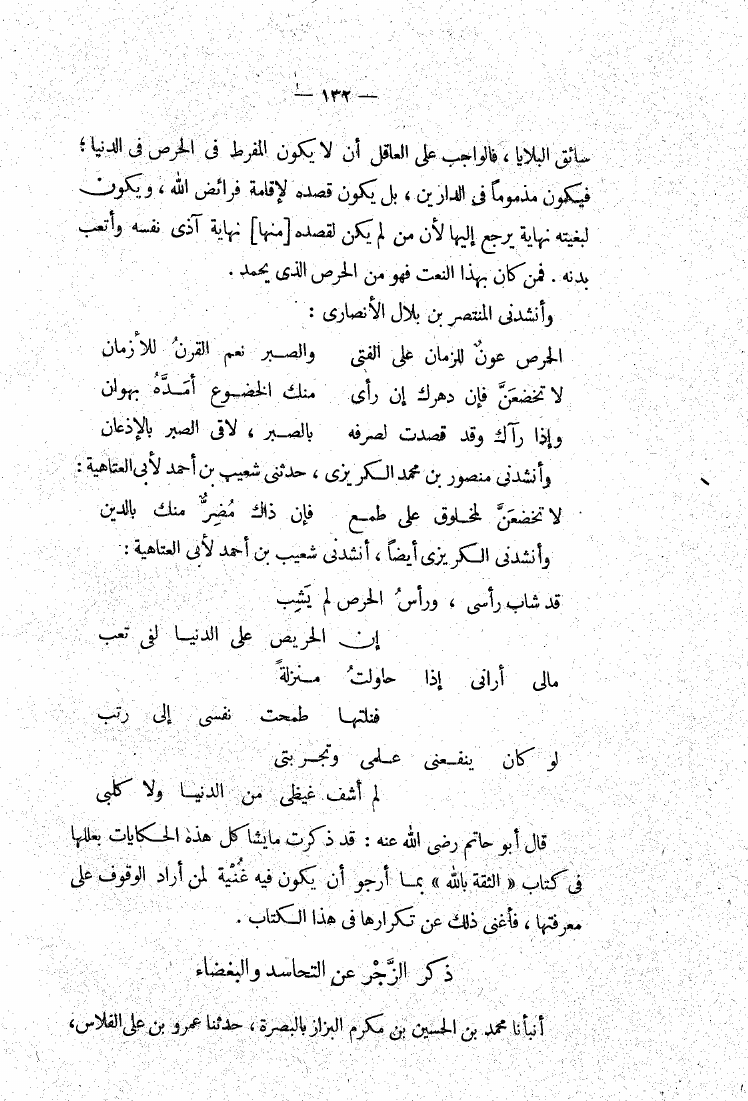 — ١٣٢ —
سائق البلايا ، فالواجب على العاقل أن لا يكون المفرط فى الحرص فى الدنيا ؛
فيكون مذموماً فى الدارين ، بل يكون قصده لإقامة فرائض الله ، ويكون
لبغيته نهاية يرجع إليها لأن من لم يكن لقصده [منها] نهاية آذى نفسه وأتعب
بدنه . فمن كان بهذا النعت فهو من الحرص الذى يحمد .
وأنشدنى المنتصر بن بلال الأنصارى :
الحرص عونٌ للزمان على الفتى والصبر نعم القرنُ للأزمان
لا تخضعَنَّ فإن دهرك إن رأى منك الخضوع أمَدَّهُ بهولن
وإذا رآك وقد قصدت لصرفه بالصبر ، لاقى الصبر بالإذعان
وأنشدنى منصور بن محمد الكريزى ، حدثنى شعيب بن أحمد لأبى العتاهية :
لا تخضعَنَّ لمخلوق على طمع فإن ذاك مُضِرٌّ منك بالدين
وأنشدنى الكريزى أيضاً ، أنشدنى شعيب بن أحمد لأبى العتاهية :
قد شاب رأسى ، ورأسُ الحرص لم يَشِب
إن الحريص على الدنيا لفى تعب
مالى أرانى إذا حاولتُ منزلةً
فنلتها طمحت نفسى إلى رتب
لو كان ينفعنى علمى وتجربتى
لم أشف غيظى من الدنيا ولا كلبى
قال أبو حاتم رضى الله عنه : قد ذكرت مايشاكل هذه الحكايات بعللها
فى كتاب « الثقة بالله » بما أرجو أن يكون فيه غُنْية لمن أراد الوقوف على
معرفتها ، فأغنى ذلك عن تكرارها فى هذا الكتاب .
ذكر الزَّجْر عن التحاسد والبغضاء
أنبأنا محمد بن الحسين بن مكرم البزاز بالبصرة ، حدثنا عمرو بن على الفلاس،